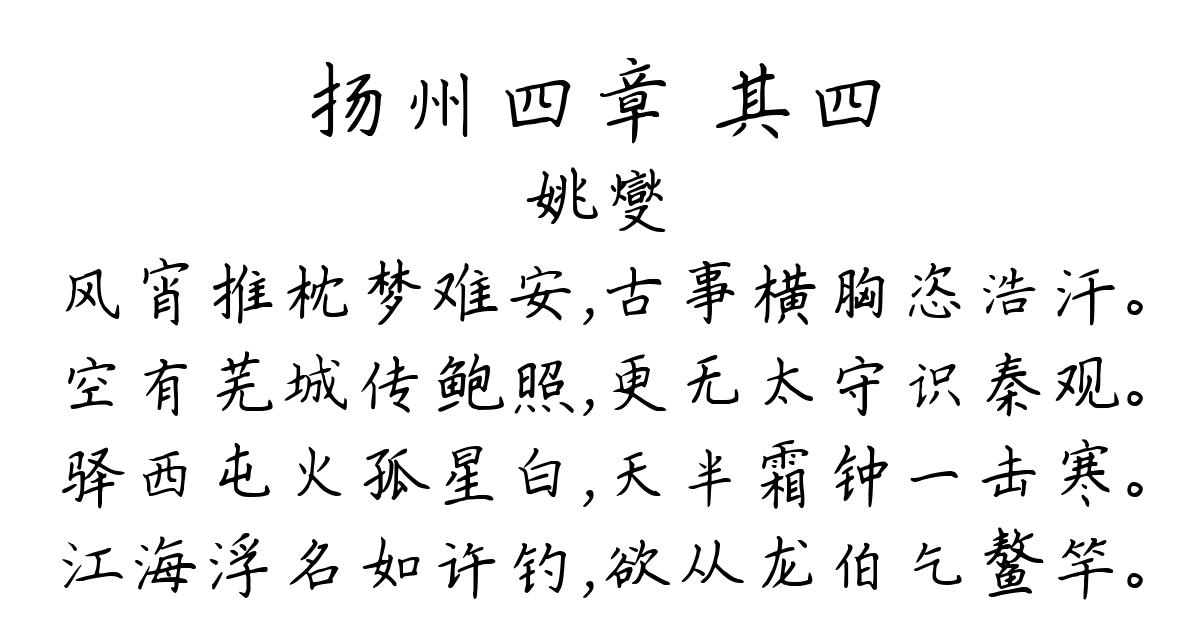 扬州四章 其四
姚燮
风宵推枕梦难安,古事横胸恣浩汗。
空有芜城传鲍照,更无太守识秦观。
驿西屯火孤星白,天半霜钟一击寒。
江海浮名如许钓,欲从龙伯乞鳌竿。